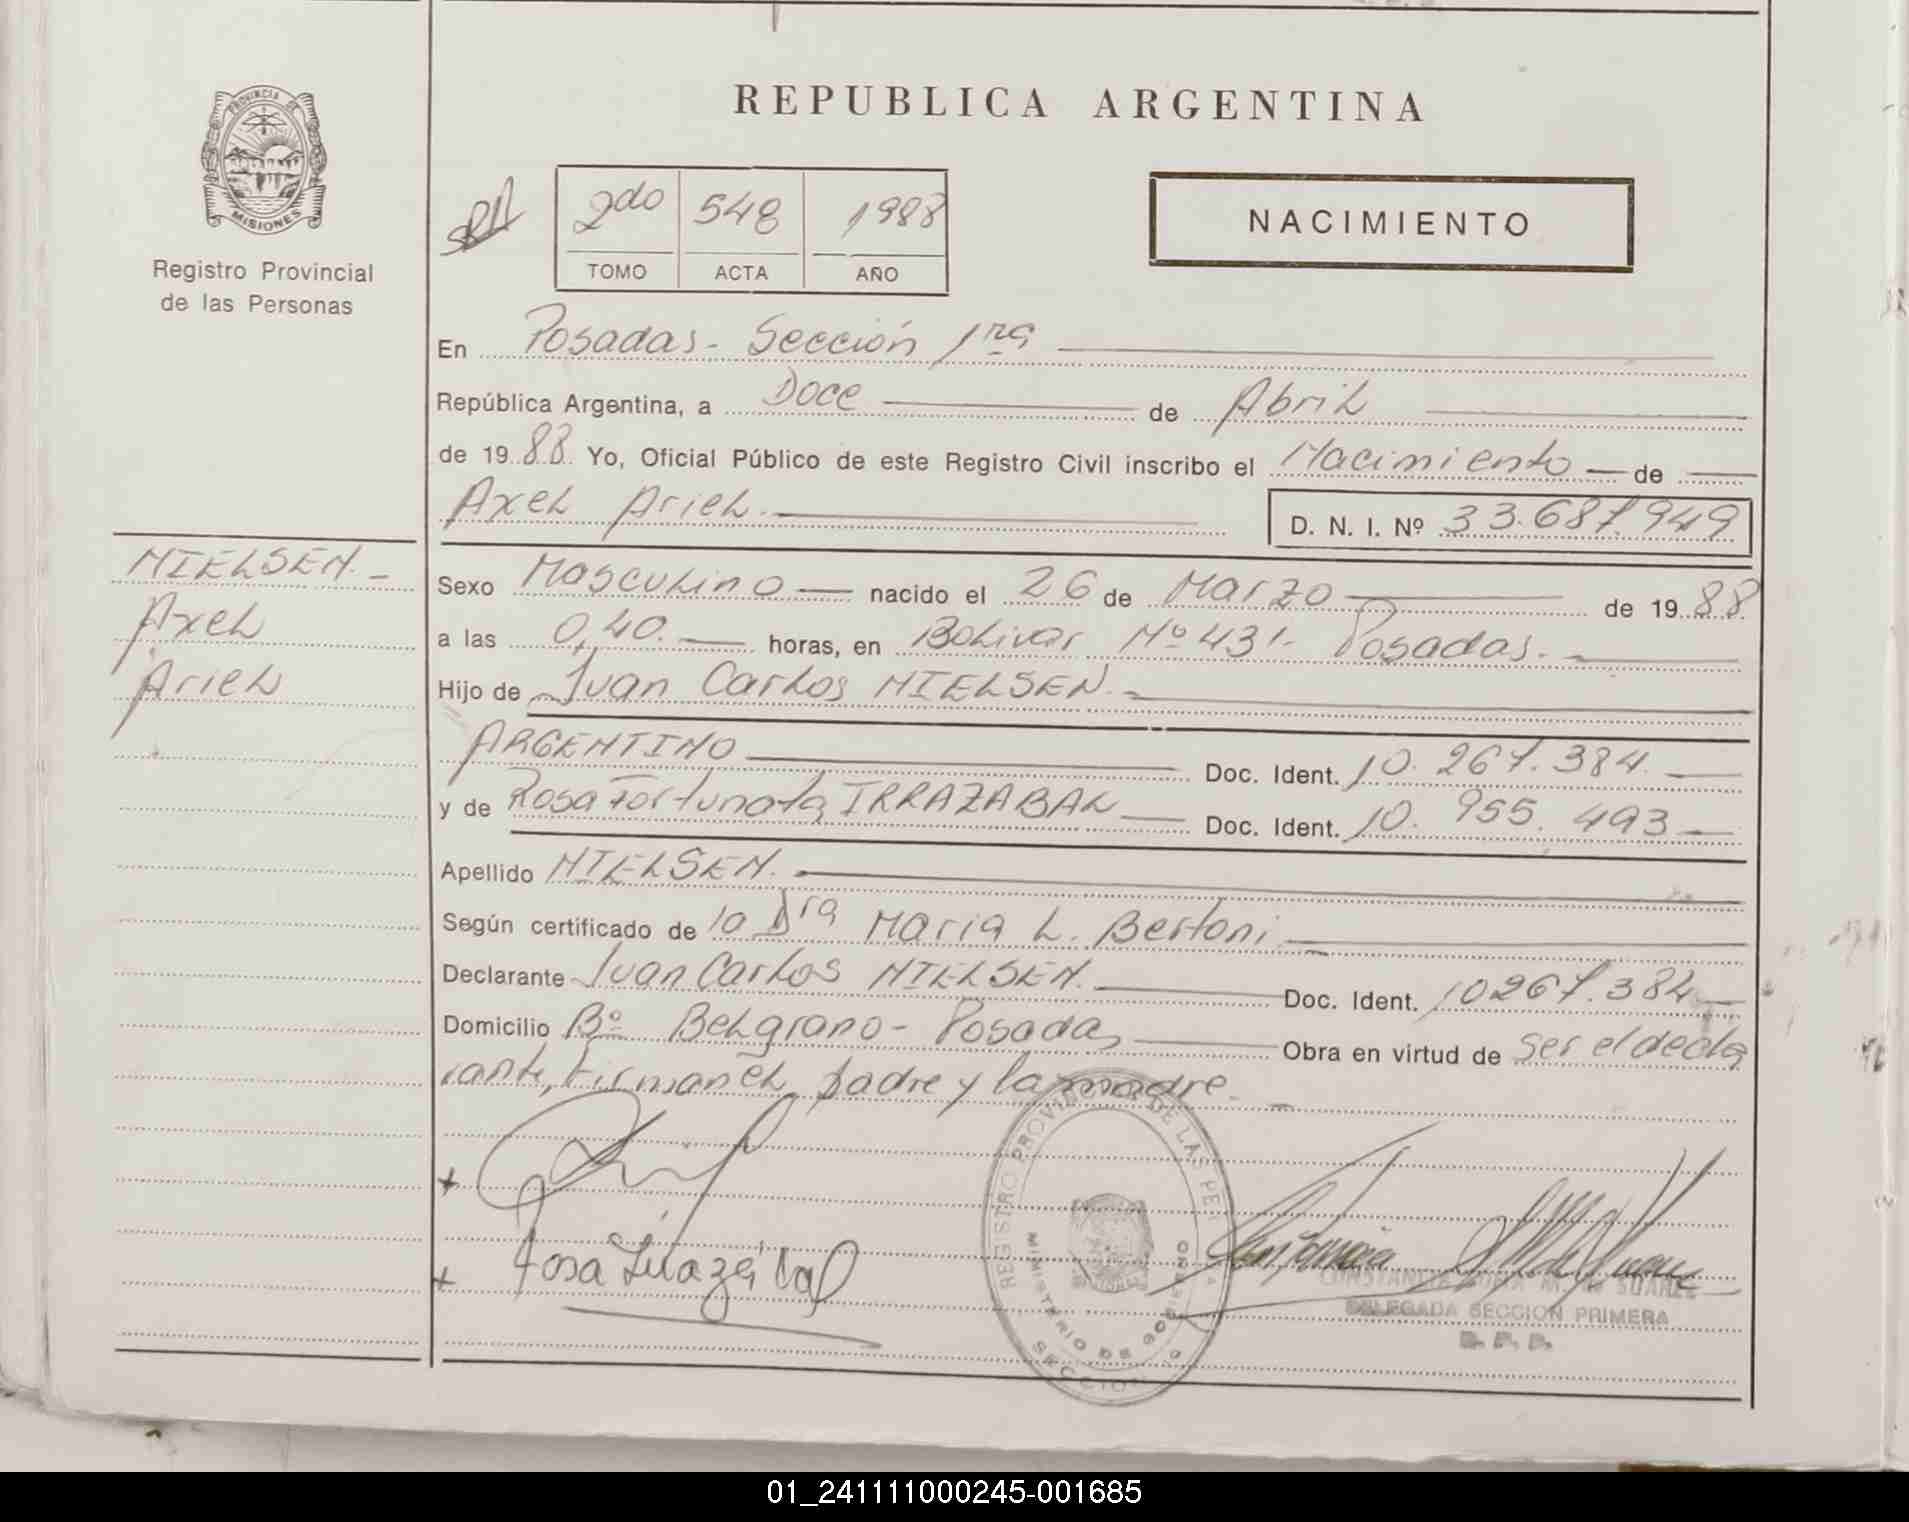 REPUBLICA ARGENTINA
PROVINCIA DE
MISIONES
Registro Provincial
de las Personas
2do 548 1988
TOMO ACTA AÑO
NACIMIENTO
En Posadas - Sección 1ra
República Argentina, a Doce de Abril
de 1988 Yo, Oficial Público de este Registro Civil inscribo el Nacimiento de
Axel Ariel. D. N. I. Nº 33.687.949
NIELSEN.
Axel
Ariel
Sexo Masculino nacido el 26 de Marzo de 1988
a las 0,40. horas, en Bolivar Nº 431- Posadas.
Hijo de Juan Carlos NIELSEN.
ARGENTINO Doc. Ident. 10.267.384.
y de Rosa Fortunata IRRAZABAL Doc. Ident. 10.955.493
Apellido NIELSEN.
Según certificado de la Dra Maria L. Bertoni
Declarante Juan Carlos NIELSEN. Doc. Ident. 10267.384
Domicilio Bº Belgrano - Posadas Obra en virtud de ser el decla
rante, Firman el padre y la madre.
REGISTRO PROVINCIAL DE LAS PER
MINISTERIO DE GOBIERNO
SECCION
DELEGADA SECCION PRIMERA
01_241111000245-001685